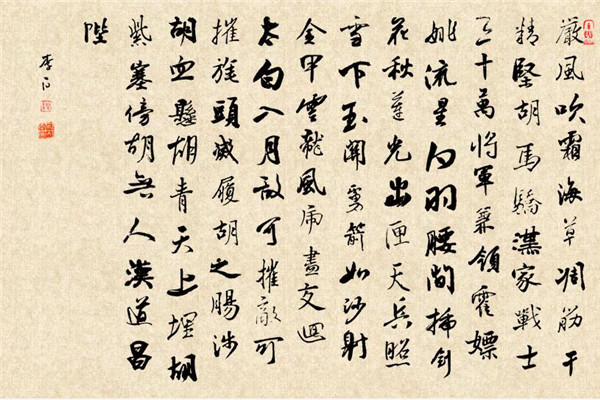 嚴風吹霜海草凋筋干
精堅胡馬驕漢家戰士
三十萬將軍兼領霍嫖
姚流星白羽腰間插劍
花秋蓮光出匣天兵照
雪下玉關虜箭如沙射
金甲雲龍風虎盡交迴
太白入月敵可摧敵可
摧旄頭滅履胡之腸涉
胡血懸胡青天上埋胡
紫塞傍胡无人漢道昌
陛
李白